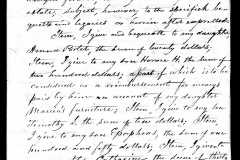 estate, subject, however, to the specifick be
quests and legacies as herein after expressed.
Item, I give and bequeath to my daughter
the sum of twenty dollars,
Item, I give to my son Horace H. the sum of
two hundred dollars, a part of which is to be
considered as a reimbursement for moneys
paid by him on account of my daughter
Maria's furniture, Item, I give to my son
Timothy L. the sum of ten dollars, Item,
I give to my son the sum of one
hundred and fifty dollars, Item, I give unto
Catharine the sum of thirty